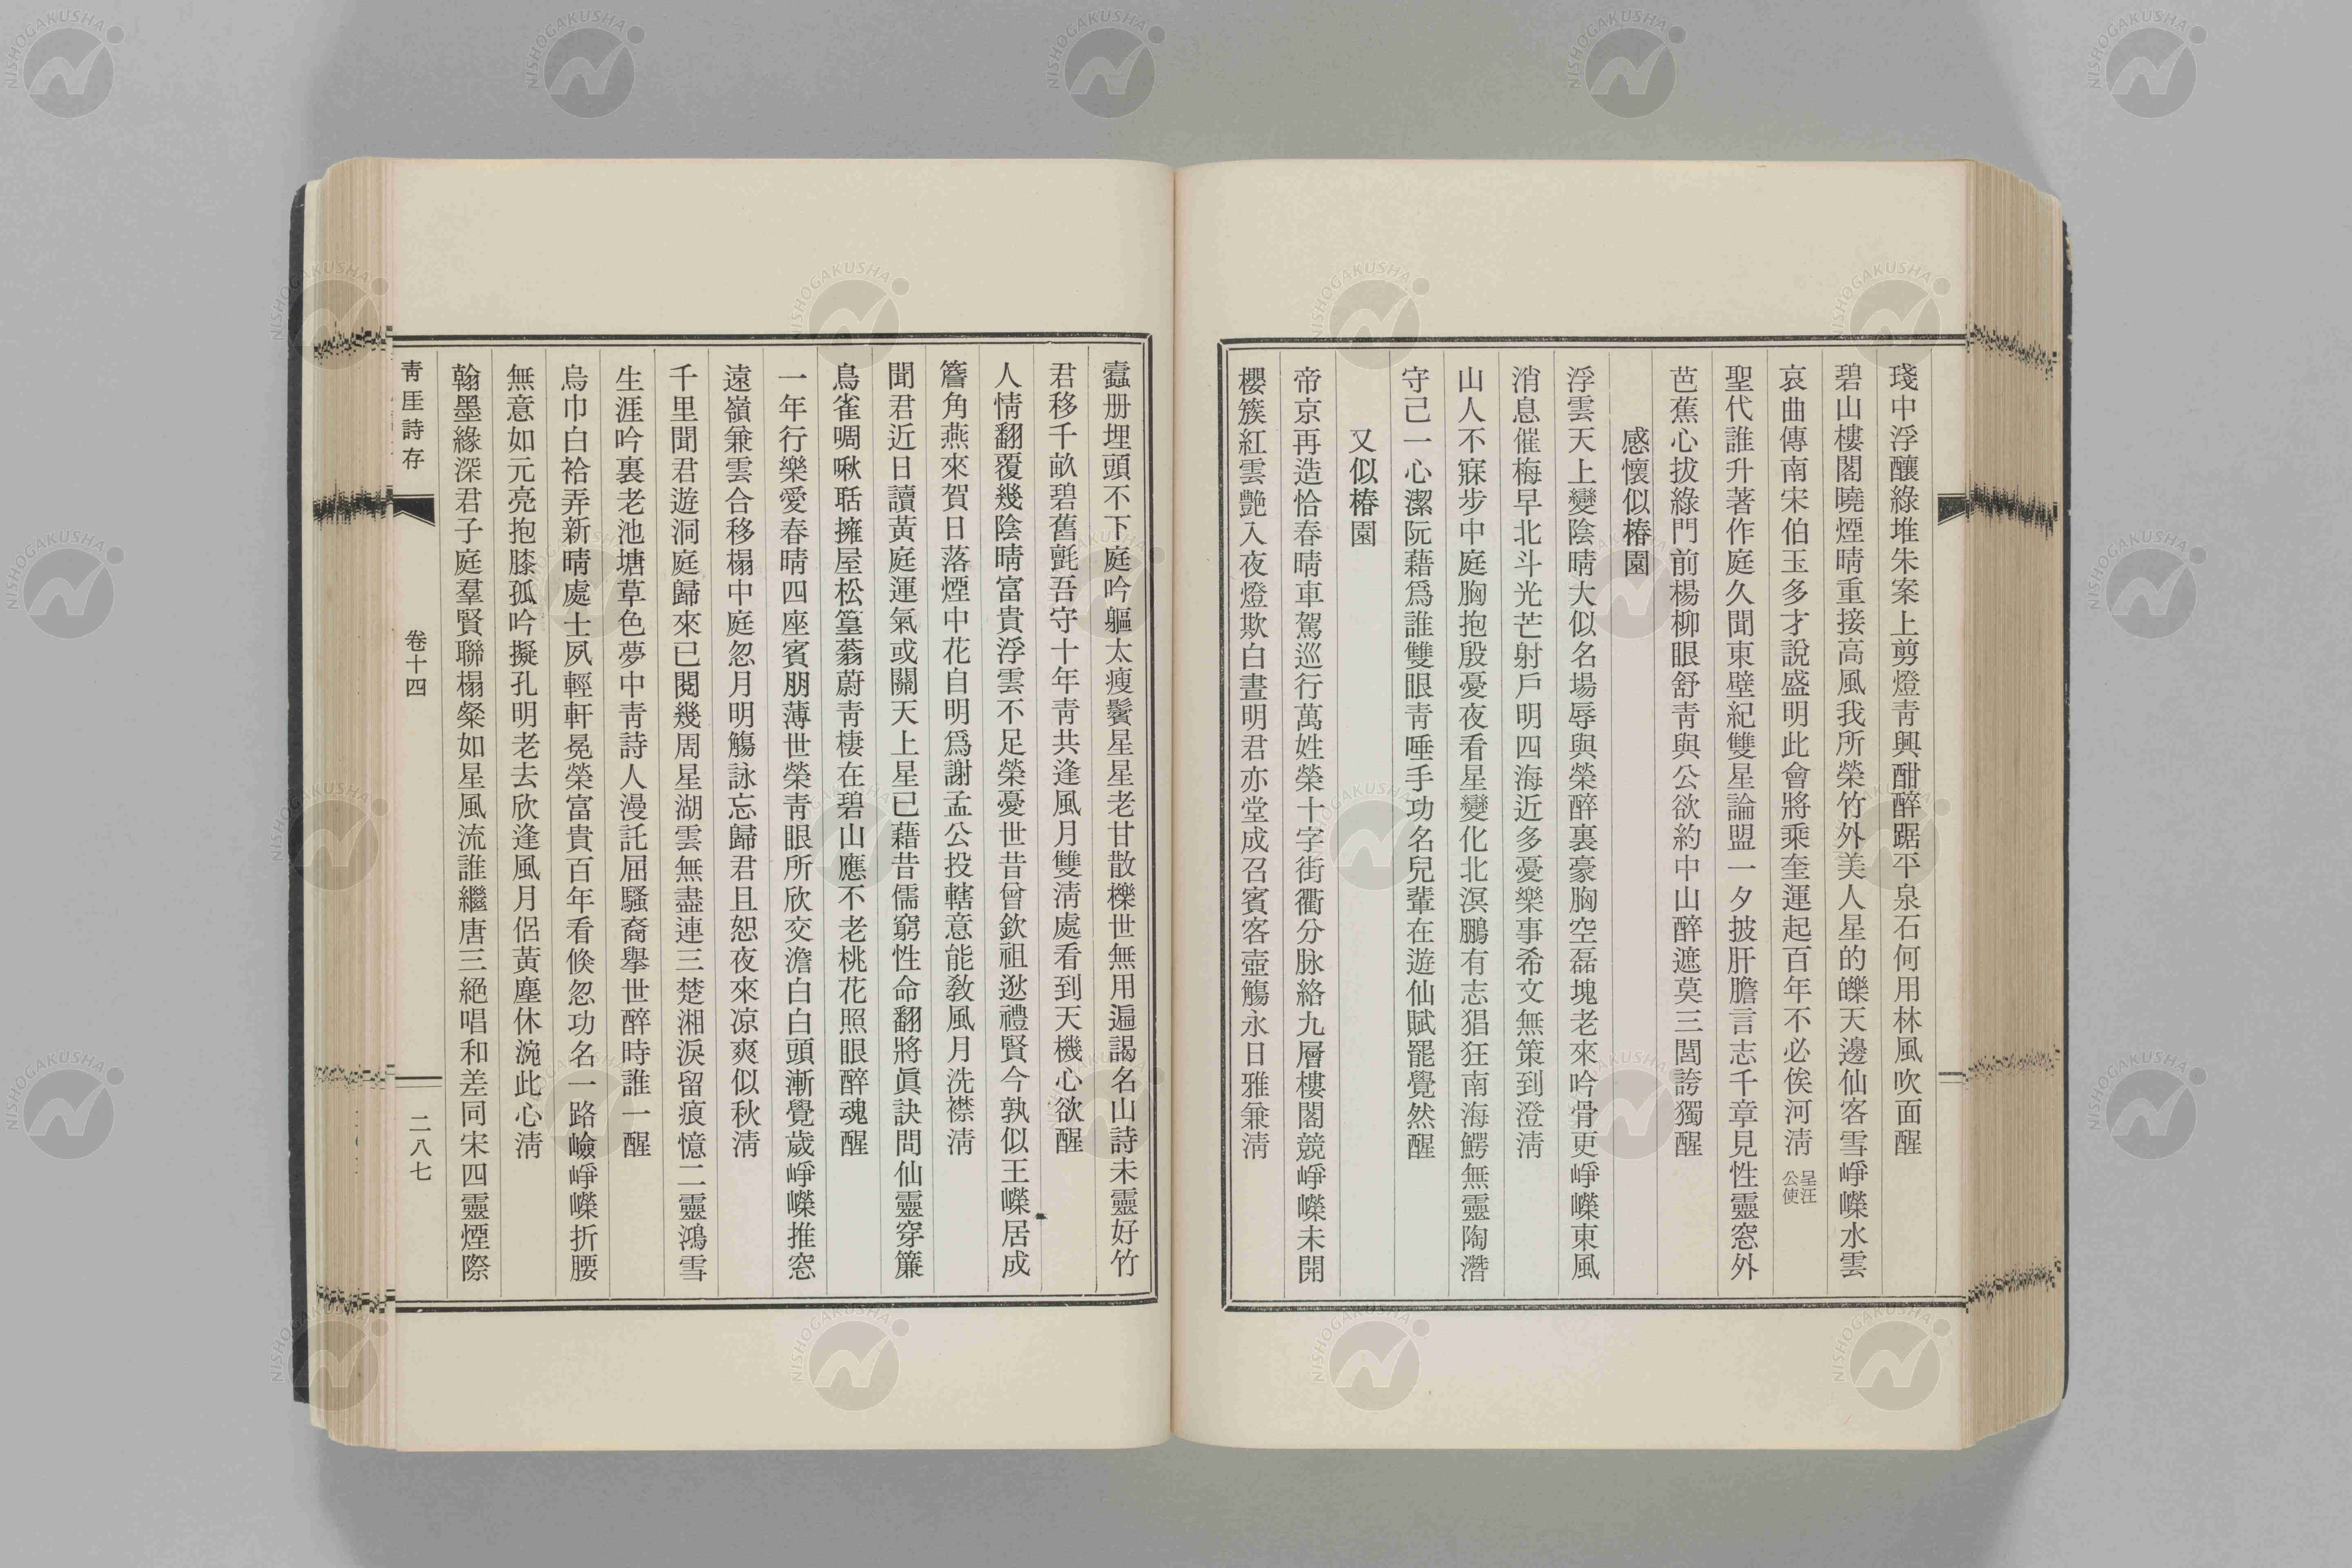 琖中浮釀綠堆朱案上剪燈靑興酣醉踞平泉石何用林風吹面醒
碧山樓閣曉煙晴重接高風我所榮竹外美人星的皪天邊仙客雪崢嶸水雲
哀曲傳南宋伯玉多才說盛明此會將乘奎運起百年不必俟河淸呈汪公使
聖代誰升著作庭久聞東壁紀雙星論盟一夕披肝膽言志千章見性靈窓外
芭蕉心拔綠門前楊柳眼舒靑與公欲約中山醉遮莫三閭誇獨醒
感懷似椿園
浮雲天上變陰晴大似名場辱與榮醉裏豪胸空磊塊老來吟骨更崢嶸東風
消息催梅早北斗光芒射戶明四海近多憂樂事希文無策到澄淸
山人不寐步中庭胸抱殷憂夜看星變化北溟鵬有志猖狂南海鰐無靈陶潛
守己一心潔阮藉爲誰雙眼靑唾手功名兒輩在遊仙賦罷覺然醒
又似椿園
帝京再造恰春晴車駕巡行萬姓榮十字街衢分脉絡九層樓閣競崢嶸未開
櫻簇紅雲艶入夜燈欺白晝明君亦堂成召賓客壺觴永日雅兼淸
蠹册埋頭不下庭吟軀太瘦鬢星星老甘散櫟世無用遍謁名山詩未靈好竹
君移千畝碧舊氈吾守十年靑共逢風月雙淸處看到天機心欲醒
人情翻覆幾陰晴富貴浮雲不足榮憂世昔曾欽祖逖禮賢今孰似王嶸居成
簷角燕來賀日落煙中花自明爲謝孟公投轄意能敎風月洗襟淸
聞君近日讀黃庭運氣或關天上星已藉昔儒窮性命翻將眞訣問仙靈穿簾
鳥雀啁啾聒擁屋松篁蓊蔚靑棲在碧山應不老桃花照眼醉魂醒
一年行樂愛春晴四座賓朋薄世榮靑眼所欣交澹白白頭漸覺歲崢嶸推窓
遠嶺兼雲合移榻中庭忽月明觴詠忘歸君且恕夜來凉爽似秋淸
千里聞君遊洞庭歸來已閱幾周星湖雲無盡連三楚湘淚留痕憶二靈鴻雪
生涯吟裏老池塘草色夢中靑詩人漫託屈騷裔擧世醉時誰一醒
烏巾白袷弄新晴處士夙輕軒冕榮富貴百年看倏忽功名一路嶮崢嶸折腰
無意如元亮抱膝孤吟擬孔明老去欣逢風月侶黃塵休涴此心淸
翰墨緣深君子庭羣賢聯榻粲如星風流誰繼唐三絕唱和差同宋四靈煙際
靑厓詩存
卷十四
二八七
NISHOGAKUSHA